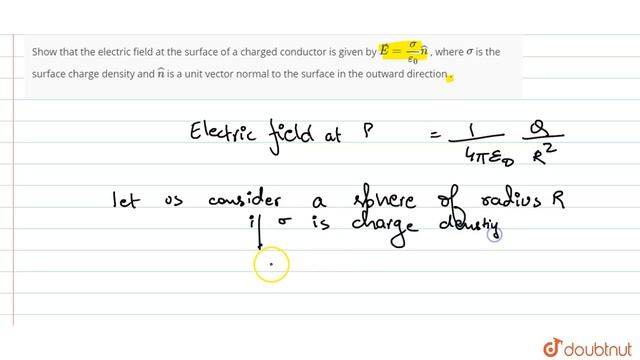 Show that the electric field at the surface of a charged conductor is given by $\vec{E} = \frac{\sigma}{\varepsilon_0}\hat{n}$, where σ is the
surface charge density and $\hat{n}$ is a unit vector normal to the surface in the outward direction .
Electric field at P = $\frac{1}{4\pi\varepsilon_0} \frac{Q}{R^2}$
let us consider a sphere of radius R
if σ is charge denstiy
doubtnut